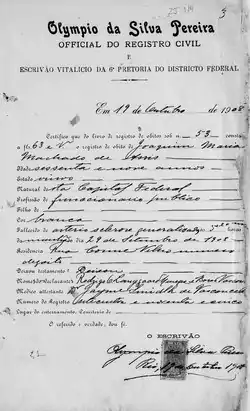 Olympio da Silva Pereira
OFFICIAL DO REGISTRO CIVIL
E
ESCRIVÃO VITALICIO DA 6ª PRETORIA DO DISTRICTO FEDERAL
Em 19 de Outubro de 1908
Certifico que do livro de registro de obitos sob n. 53 consta
a fls. 63 e V. o registro de obito de Joaquim Maria
Machado de Assis
Idade sessenta e nove annos
Estado viuvo
Natural da Capital Federal
Profissão funccionario publico
Filho de
Cor branca
Fallecido de arterio sclerose generalisada
29 de Setembro de 1908
Residencia Cosme Velho numero
dezoito
Deixou testamento? Deixou
Medico attestante Jayme Smith de Vasconcellos
Numero do Registro
Logar do enterramento, Cemiterio de
O referido é verdade, dou fé.
O ESCRIVÃO
Olympio da Silva Pereira
Rio, 19 de Outubro 1908